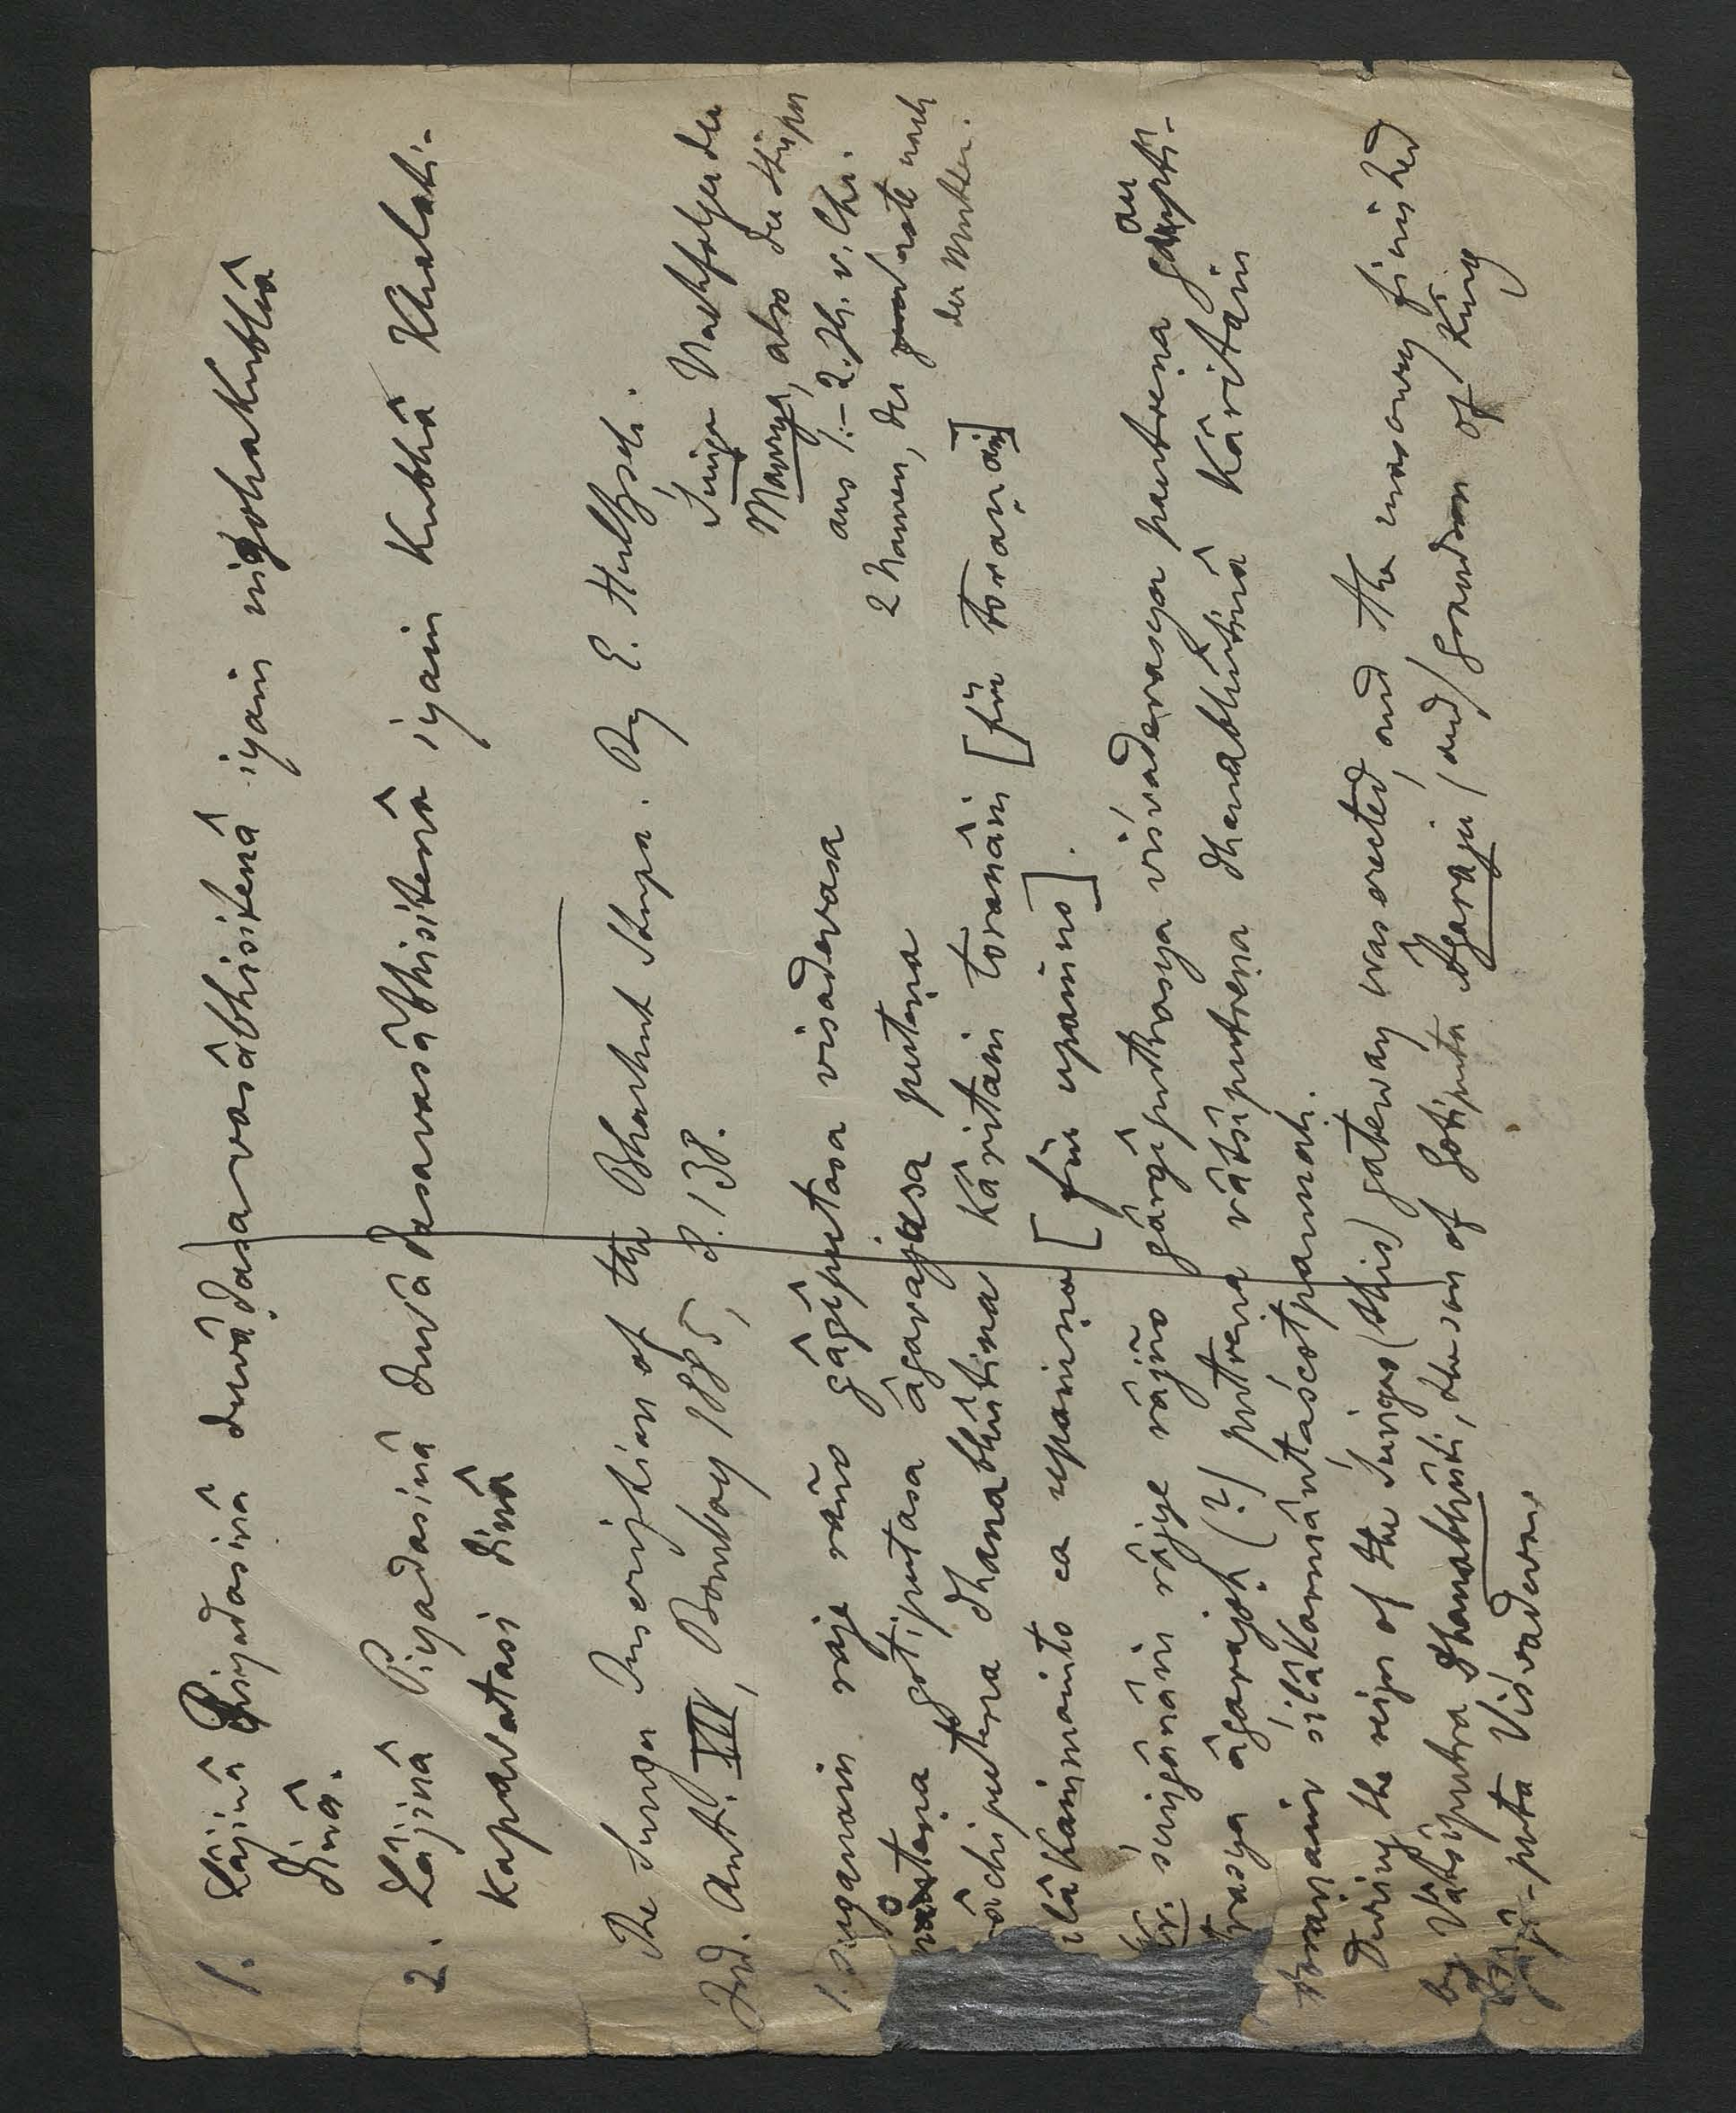 1. Lâjinâ Piyadasinâ duvâḍasavasâbhisitenâ iyaṁ nigohakubhâ
dinâ.
2. Lâjinâ Piyadasinâ duvâḍasavasâbhisitenâ iyaṁ kubhâ Khalati-
kapavatasi dinâ
The Sunga Inscription of the Bharhut Stupa. By E. Hultzsch.
Ind. Ant. XIV, Bombay 1885, S. 138.
Śuṅga Nachfolger der
Maurya, also der Stupa
aus 1.–2. Jh. v. Chr.
2 Namen, der nach
der Mutter.
1. Suganaṁ raje raño gâgîputasa visadevasa
gotiputasa âgarajasa puteṇa
vâchiputena dhanabhûtina kâritaṁ toranâṁ [für toraṇaṁ]
silâkaṁmaṁto ca upaṁṇa [für upaṁno].
śuṅgânâṁ râjye râjño gârgîputrasya viśvadevasya pautreṇa gaupti-
putrasya âgarajoḥ (?) putreṇa vâtsîputreṇa dhanabhûtinâ kâritaṁ
toraṇaṁ śilâkarmântaścotpannaḥ.
During the reign of the Śuṅgas (this) gateway was erected, and the masonry finished
by Vâtsîputra Dhanabhûti, the son of Gotiputa Âgaraju (and) grandson of King
-puta Visvadeva.